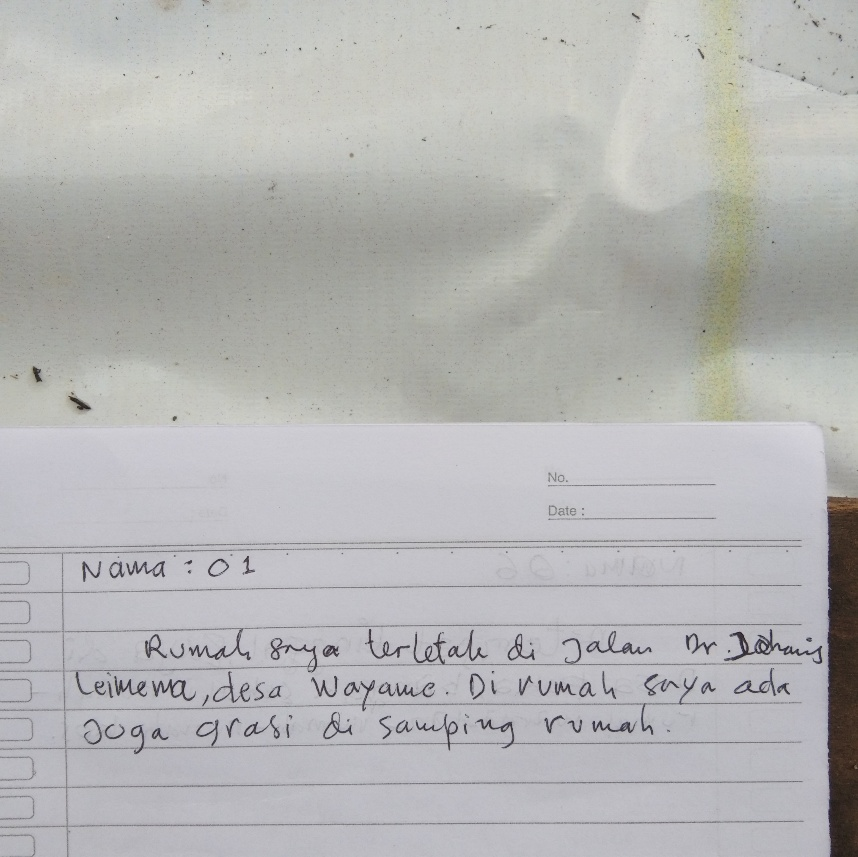 No.
Date :
Nama : 01
Rumah saya terletak di Jalan Dr. Johanis
Leimema, desa Wayame. Di rumah saya ada
Joga grasi di samping rumah.